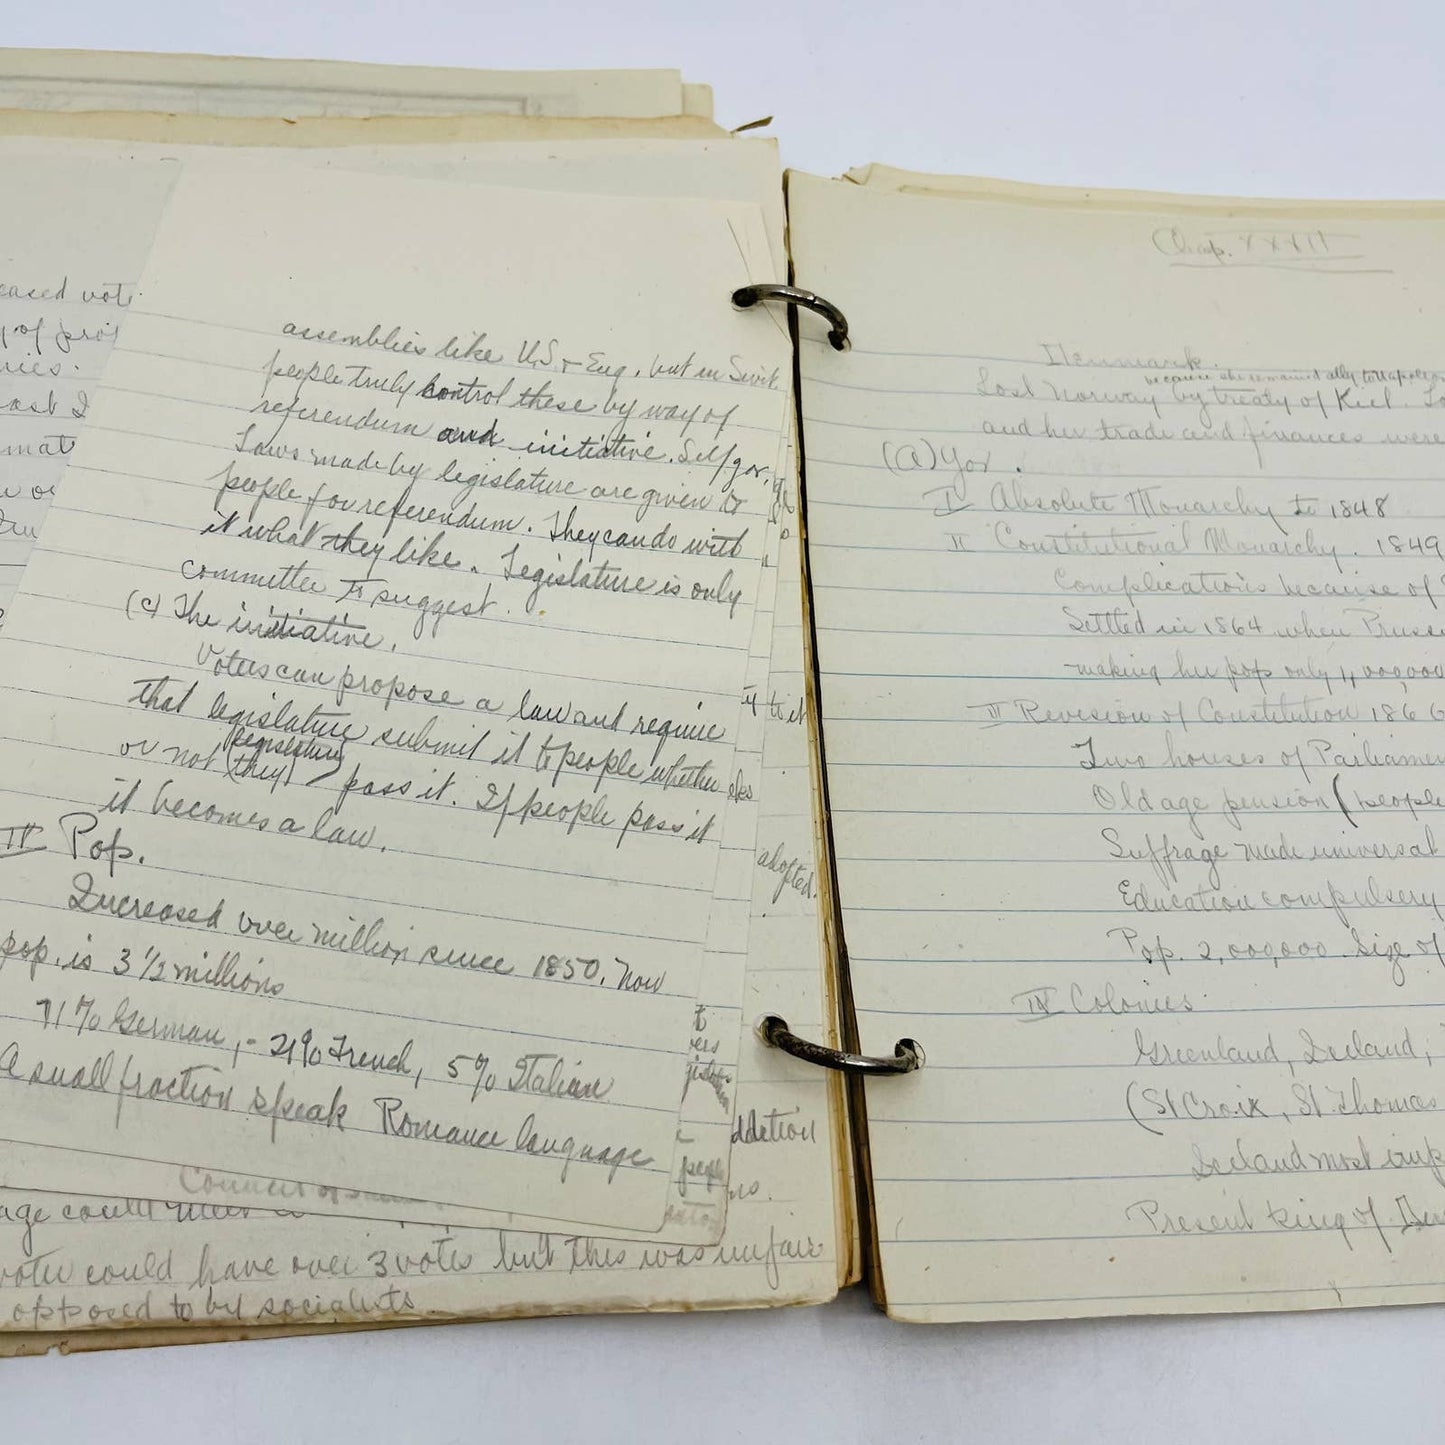 assemblies like U.S + Eng. but in Swit.
people truly control these by way of
referendum and initiative. Self gov.
Laws made by legislature are given to
people for referendum. They can do with
it what they like. Legislature is only
committee to suggest.
(c) The initiative.
Voters can propose a law and require
that legislature submit it to people whether
or not (they) legislature pass it. If people pass it
it becomes a law.
IV Pop.
Increased over million since 1850. Now
pop. is 3 1/2 millions
71% German, - 21% French, 5% Italian
A small fraction speak Romance language
voter could have over 3 votes but this was unfair
opposed to by socialists.
eased vot
of pro
nies.
ast I
mat
to it
adopted.
ddation
people
Chap. XXXII
Denmark.
because she remained ally to Napoleon
Lost Norway by treaty of Kiel.
and her trade and finances were
(a) Gov.
I Absolute Monarchy to 1848
II Constitutional Monarchy. 1849
Complications because of
Settled in 1864 when Pruss
making her pop only 1,000,000
III Revision of Constitution 1866
Two houses of Parliamen
Old age pension (people
Suffrage made universal
Education compulsery
Pop. 2,000,000. Size of
IV Colonies
Greenland, Iceland,
(St Croix, St Thomas
Iceland most imp
Present king of Den